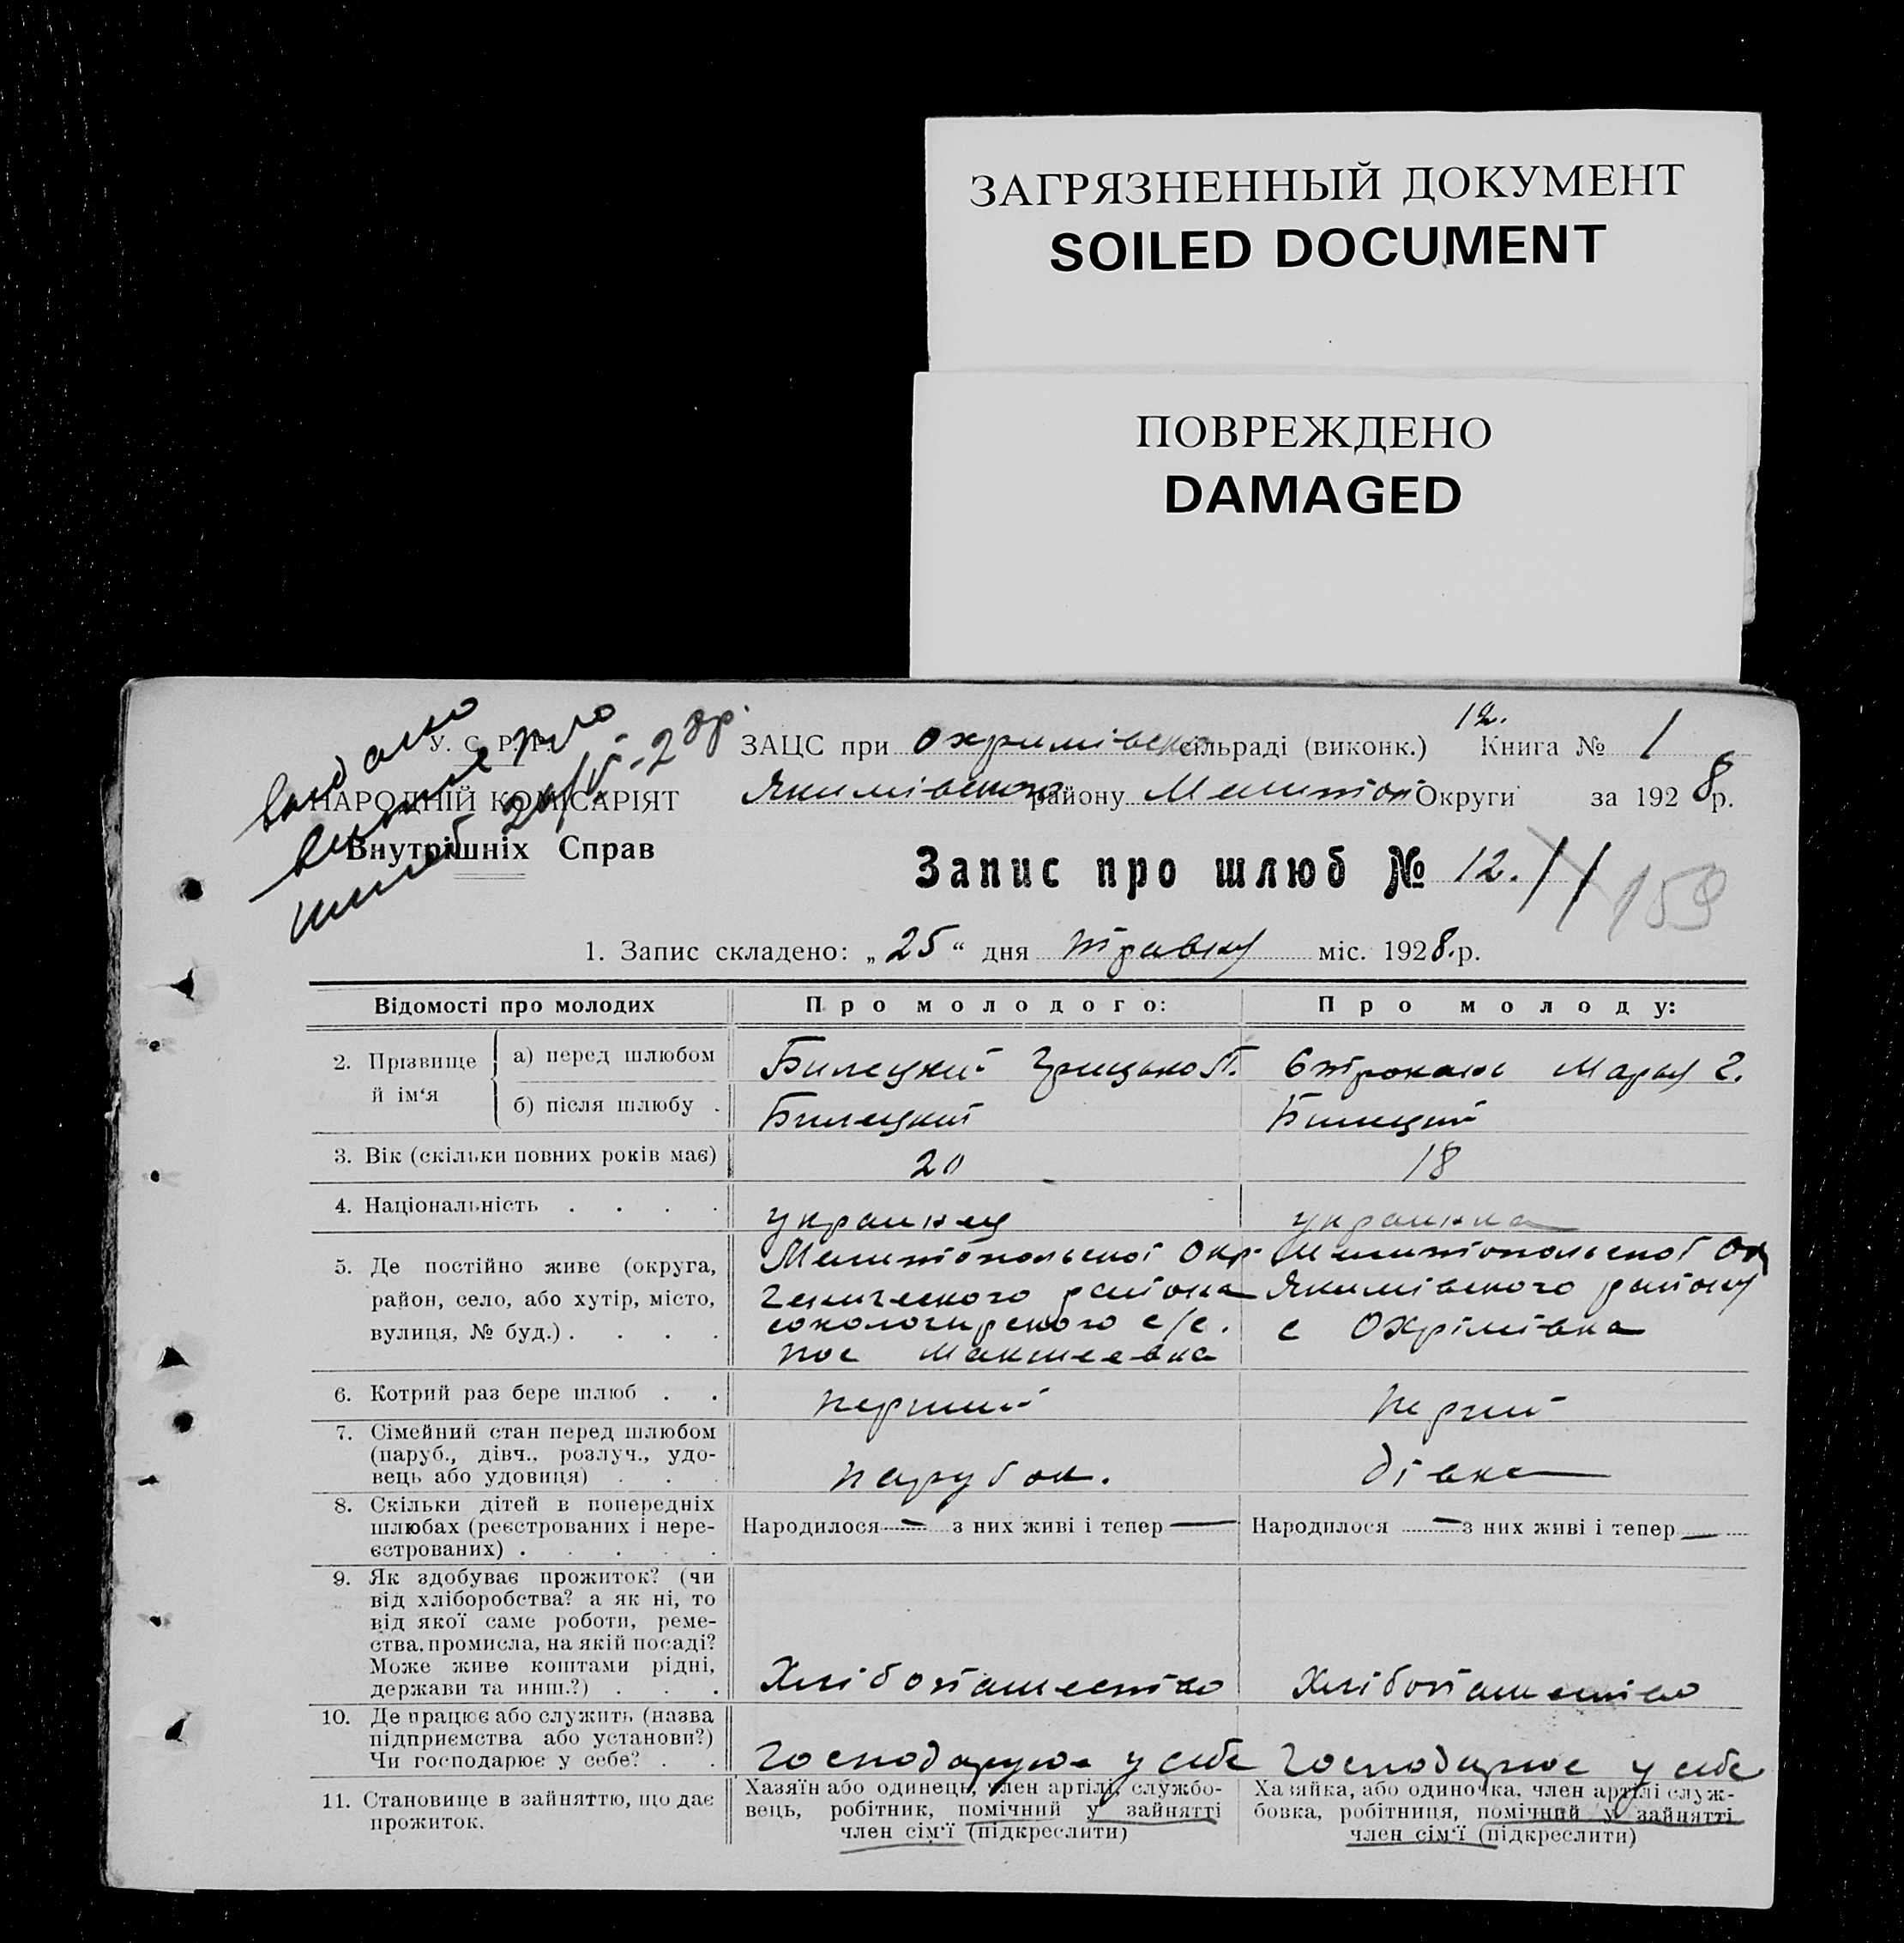 ЗАГРЯЗНЕННЫЙ ДОКУМЕНТ
SOILED DOCUMENT
ПОВРЕЖДЕНО
DAMAGED
У. С. Р. Р.
НАРОДНІЙ КОМІСАРІЯТ
Внутрішніх Справ
12.
ЗАЦС при Охримівській сільраді (виконк.) Книга № 1
Якимівського району Мелитоп Округи за 1928 р.
Запис про шлюб № 12. 11
159
1. Запис складено: „25“ дня травня міс. 1928. р.
Відомості про молодих Про молодого: Про молоду:
2. Прізвище й ім‘я
а) перед шлюбом Билецкий Грицько П. Строкань Мария Г.
б) після шлюбу . Билецкий Билецкий
3. Вік (скільки повних років має) 20 18
4. Національність . . . . украинец украинка
5. Де постійно живе (округа,
район, село, або хутір, місто,
вулиця, № буд.) . . . .
Мелитопольскої Окр.
Генического района
сокологирского с/с.
пос
Мелитопольскої Ок
Якимівского району
с Охрімівка
6. Котрий раз бере шлюб . . перший перший
7. Сімейний стан перед шлюбом
(паруб., дівч., розлуч., удо-
вець або удовиця) . . .
парубок. дівка
8. Скільки дітей в попередніх
шлюбах (реєстрованих і нере-
єстрованих) . . . . .
Народилося — з них живі і тепер — Народилося — з них живі і тепер —
9. Як здобуває прожиток? (чи
від хліборобства? а як ні, то
від якої саме роботи, реме-
ства, промисла, на якій посаді?
Може живе коштами рідні,
держави та инш.?) . . .
Хлібопашество Хлібопашество
10. Де працює або служить (назва
підприємства або установи?)
Чи господарює у себе? . .
Господарює у себе Господарює у себе
11. Становище в зайняттю, що дає
прожиток.
Хазяїн або одинець, член артілі, службо-
вець, робітник, помічний у зайнятті
член сім‘ї (підкреслити)
Хазяйка, або одиночка, член артілі служ-
бовка, робітниця, помічний у зайнятті
член сім‘ї (підкреслити)